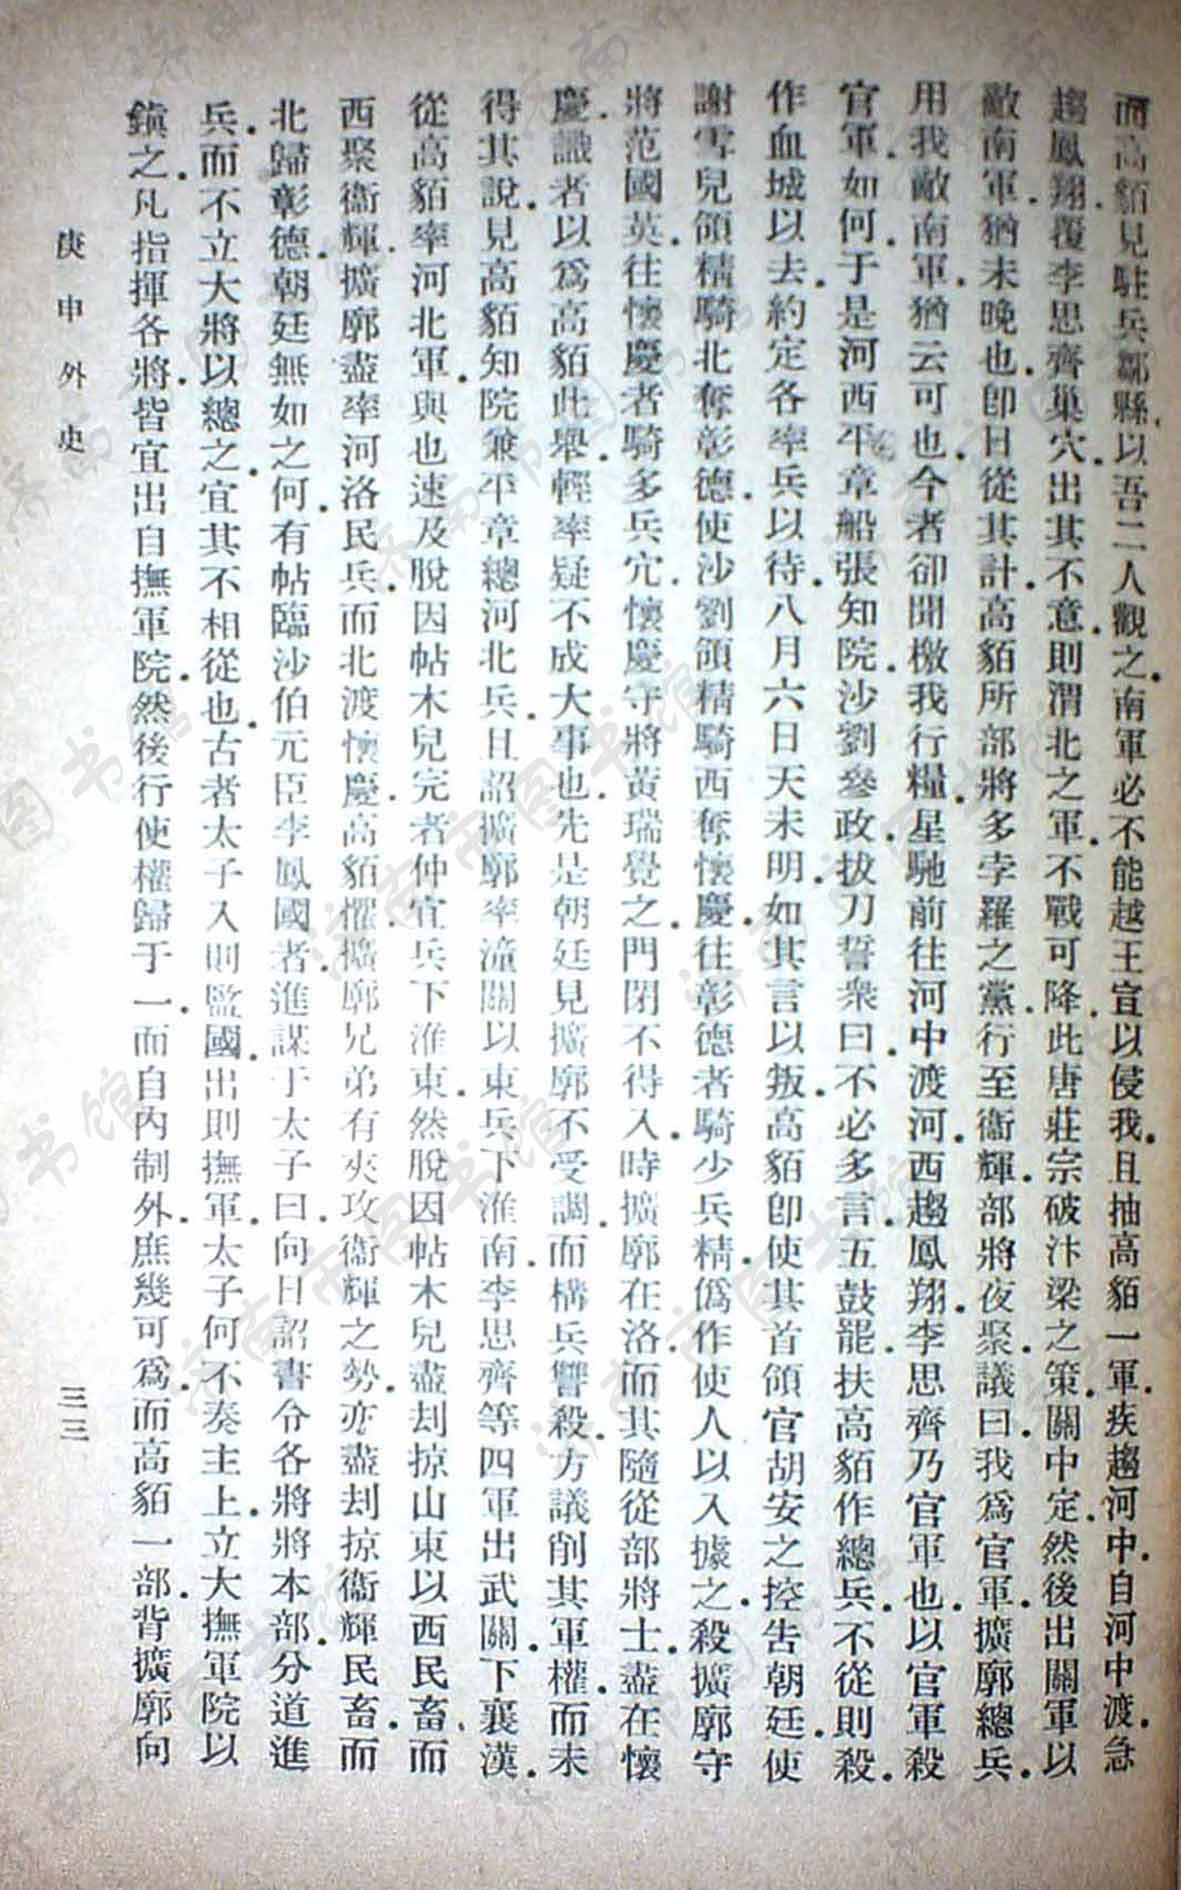 而高貊見駐兵鄒縣以吾二人觀之南軍必不能越王宣以侵我且抽高貊一軍疾趨河中自河中渡急
趨鳳翔覆李思齊巢穴出其不意則渭北之軍不戰可降此唐莊宗破汴梁之策關中定然後出關軍以
敵南軍猶未晚也卽日從其計高貊所部將多孛羅之黨行至衞輝部將夜聚議曰我爲官軍擴廓總兵
用我敵南軍猶云可也今者卻聞檄我行糧星馳前往河中渡河西趨鳳翔李思齊乃官軍也以官軍殺
官軍如何于是河西平章船張知院沙劉參政拔刀誓衆曰不必多言五鼓罷扶高貊作總兵不從則殺
作血城以去約定各率兵以待八月六日天未明如其言以叛高貊卽使其首領官胡安之控告朝廷使
謝雪兒領精騎北奪彰德使沙劉領精騎西奪懷慶往彰德者騎少兵精僞作使人以入據之殺擴廓守
將范國英往懷慶者騎多兵冗懷慶守將黃瑞覺之門閉不得入時擴廓在洛而其隨從部將士盡在懷
慶識者以爲高貊此舉輕率疑不成大事也先是朝廷見擴廓不受調而構兵讐殺方議削其軍權而未
得其說見高貊知院兼平章總河北兵且詔擴廓率潼關以東兵下淮南李思齊等四軍出武關下襄漢
從高貊率河北軍與也速及脫因帖木兒完者仲宜兵下淮東然脫因帖木兒盡刦掠山東以西民畜而
西聚衞輝擴廓盡率河洛民兵而北渡懷慶高貊懼擴廓兄弟有夾攻衞輝之勢亦盡刦掠衞輝民畜而
北歸彰德朝廷無如之何有帖臨沙伯元臣李鳳國者進謀于太子曰向日詔書令各將將本部分道進
兵而不立大將以總之宜其不相從也古者太子入則監國出則撫軍太子何不奏主上立大撫軍院以
鎭之凡指揮各將皆宜出自撫軍院然後行使權歸于一而自內制外庶幾可爲而高貊一部背擴廓向
庚申外史
三三